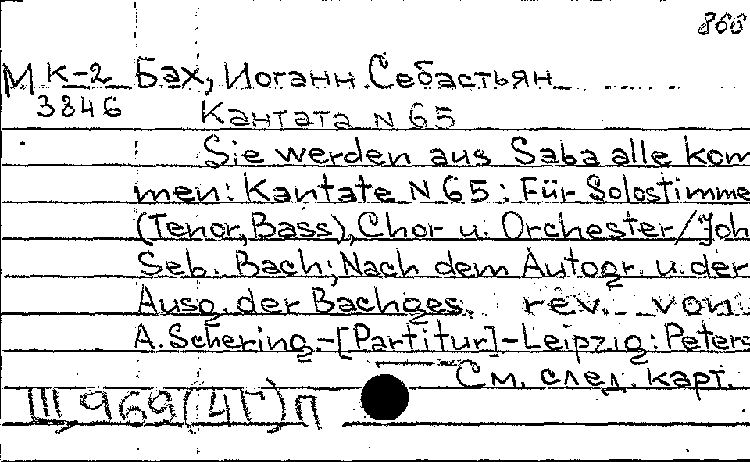 866
М К-2 Бах, Иоганн Себастьян
3846
Кантата N 65
Sie werden aus Saba alle kom
men: Kantate N 65: Für Solostimme
(Tenor, Bass), Chor u. Orchester/Joh
Seb. Bach; Nach dem Autogr. u. der
Ausg. der Bachges. rev. von
A. Schering.-[Partitur]-Leipzig: Peters
См. след. карт.
Щ969(4Г)п